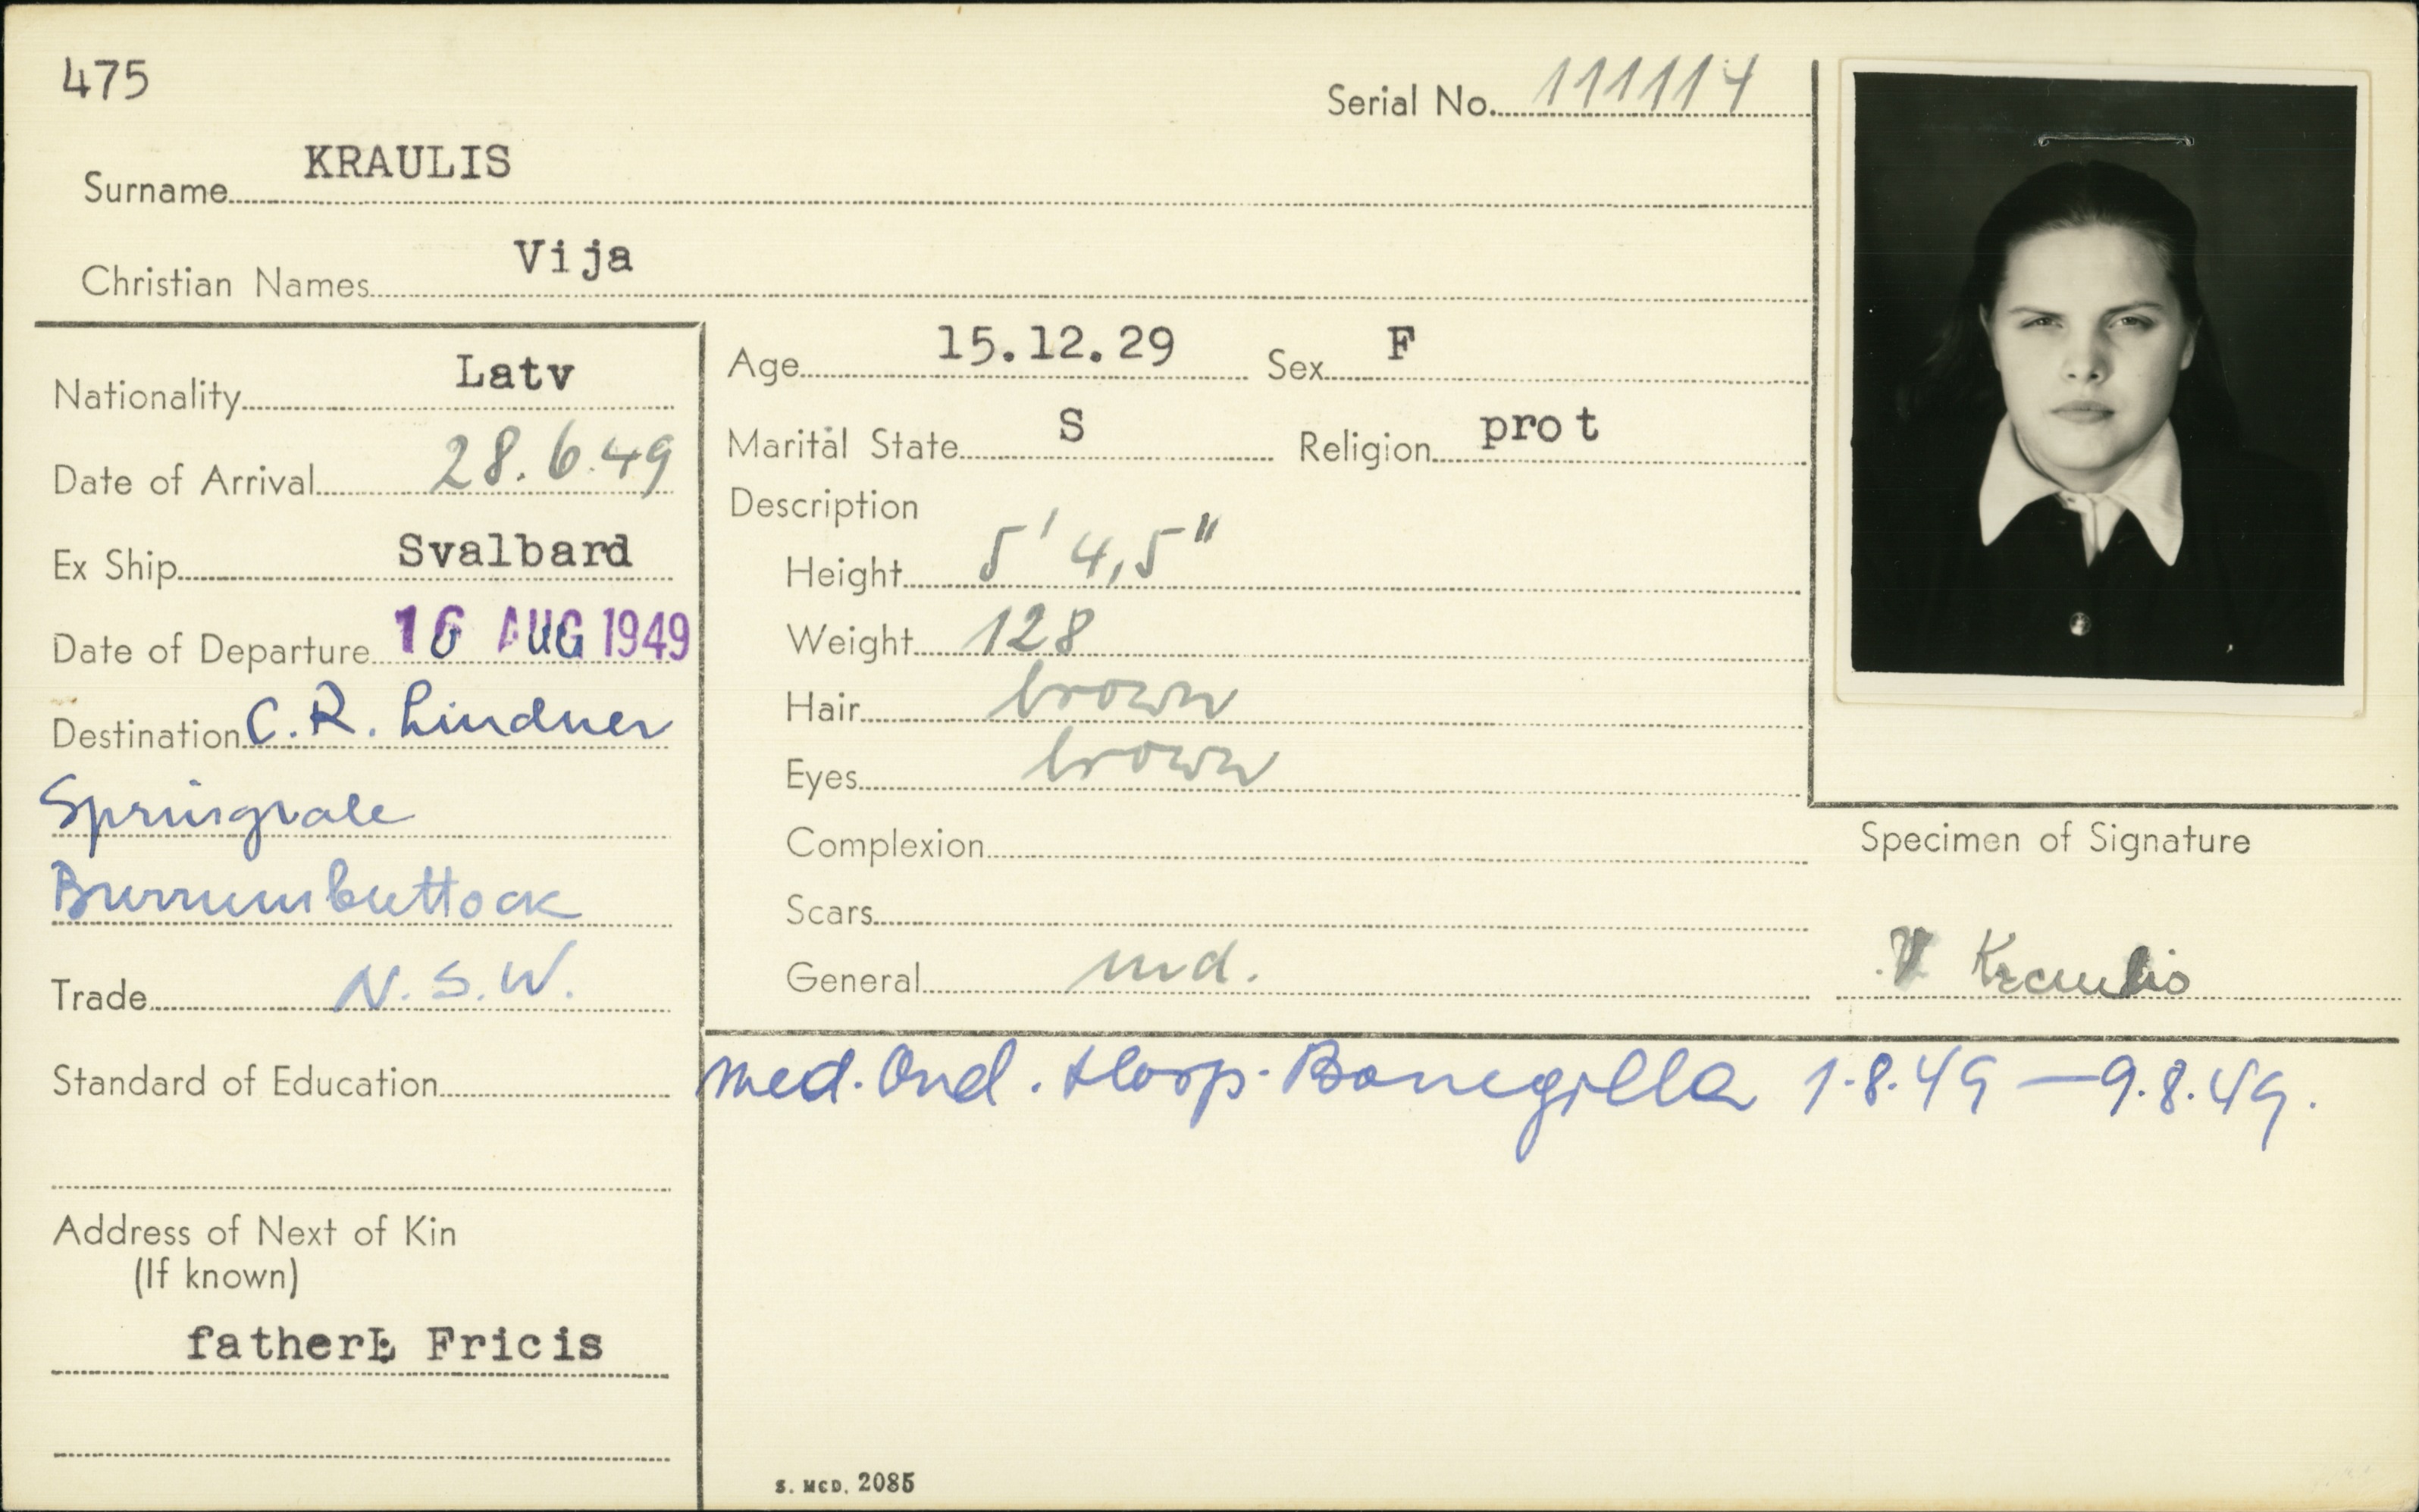 475
Serial No. 111114
Surname KRAULIS
Christian Names Vija
Nationality Latv
Date of Arrival 28.6.49
Ex Ship Svalbard
Date of Departure 16 AUG 1949
Destination C.R. Lindner
Springvale
Burrumbuttock
Trade N.S.W.
Standard of Education
Address of Next of Kin
(If known)
father: Fricis
Age 15.12.29 Sex F
Marital State S Religion prot
Description
Height 5' 4,5"
Weight 128
Hair brown
Eyes brown
Complexion
Scars
General
Specimen of Signature
V Kraulis
med. Ond. Hosp. Bonegilla 1.8.49 — 9.8.49.
S. McD. 2085